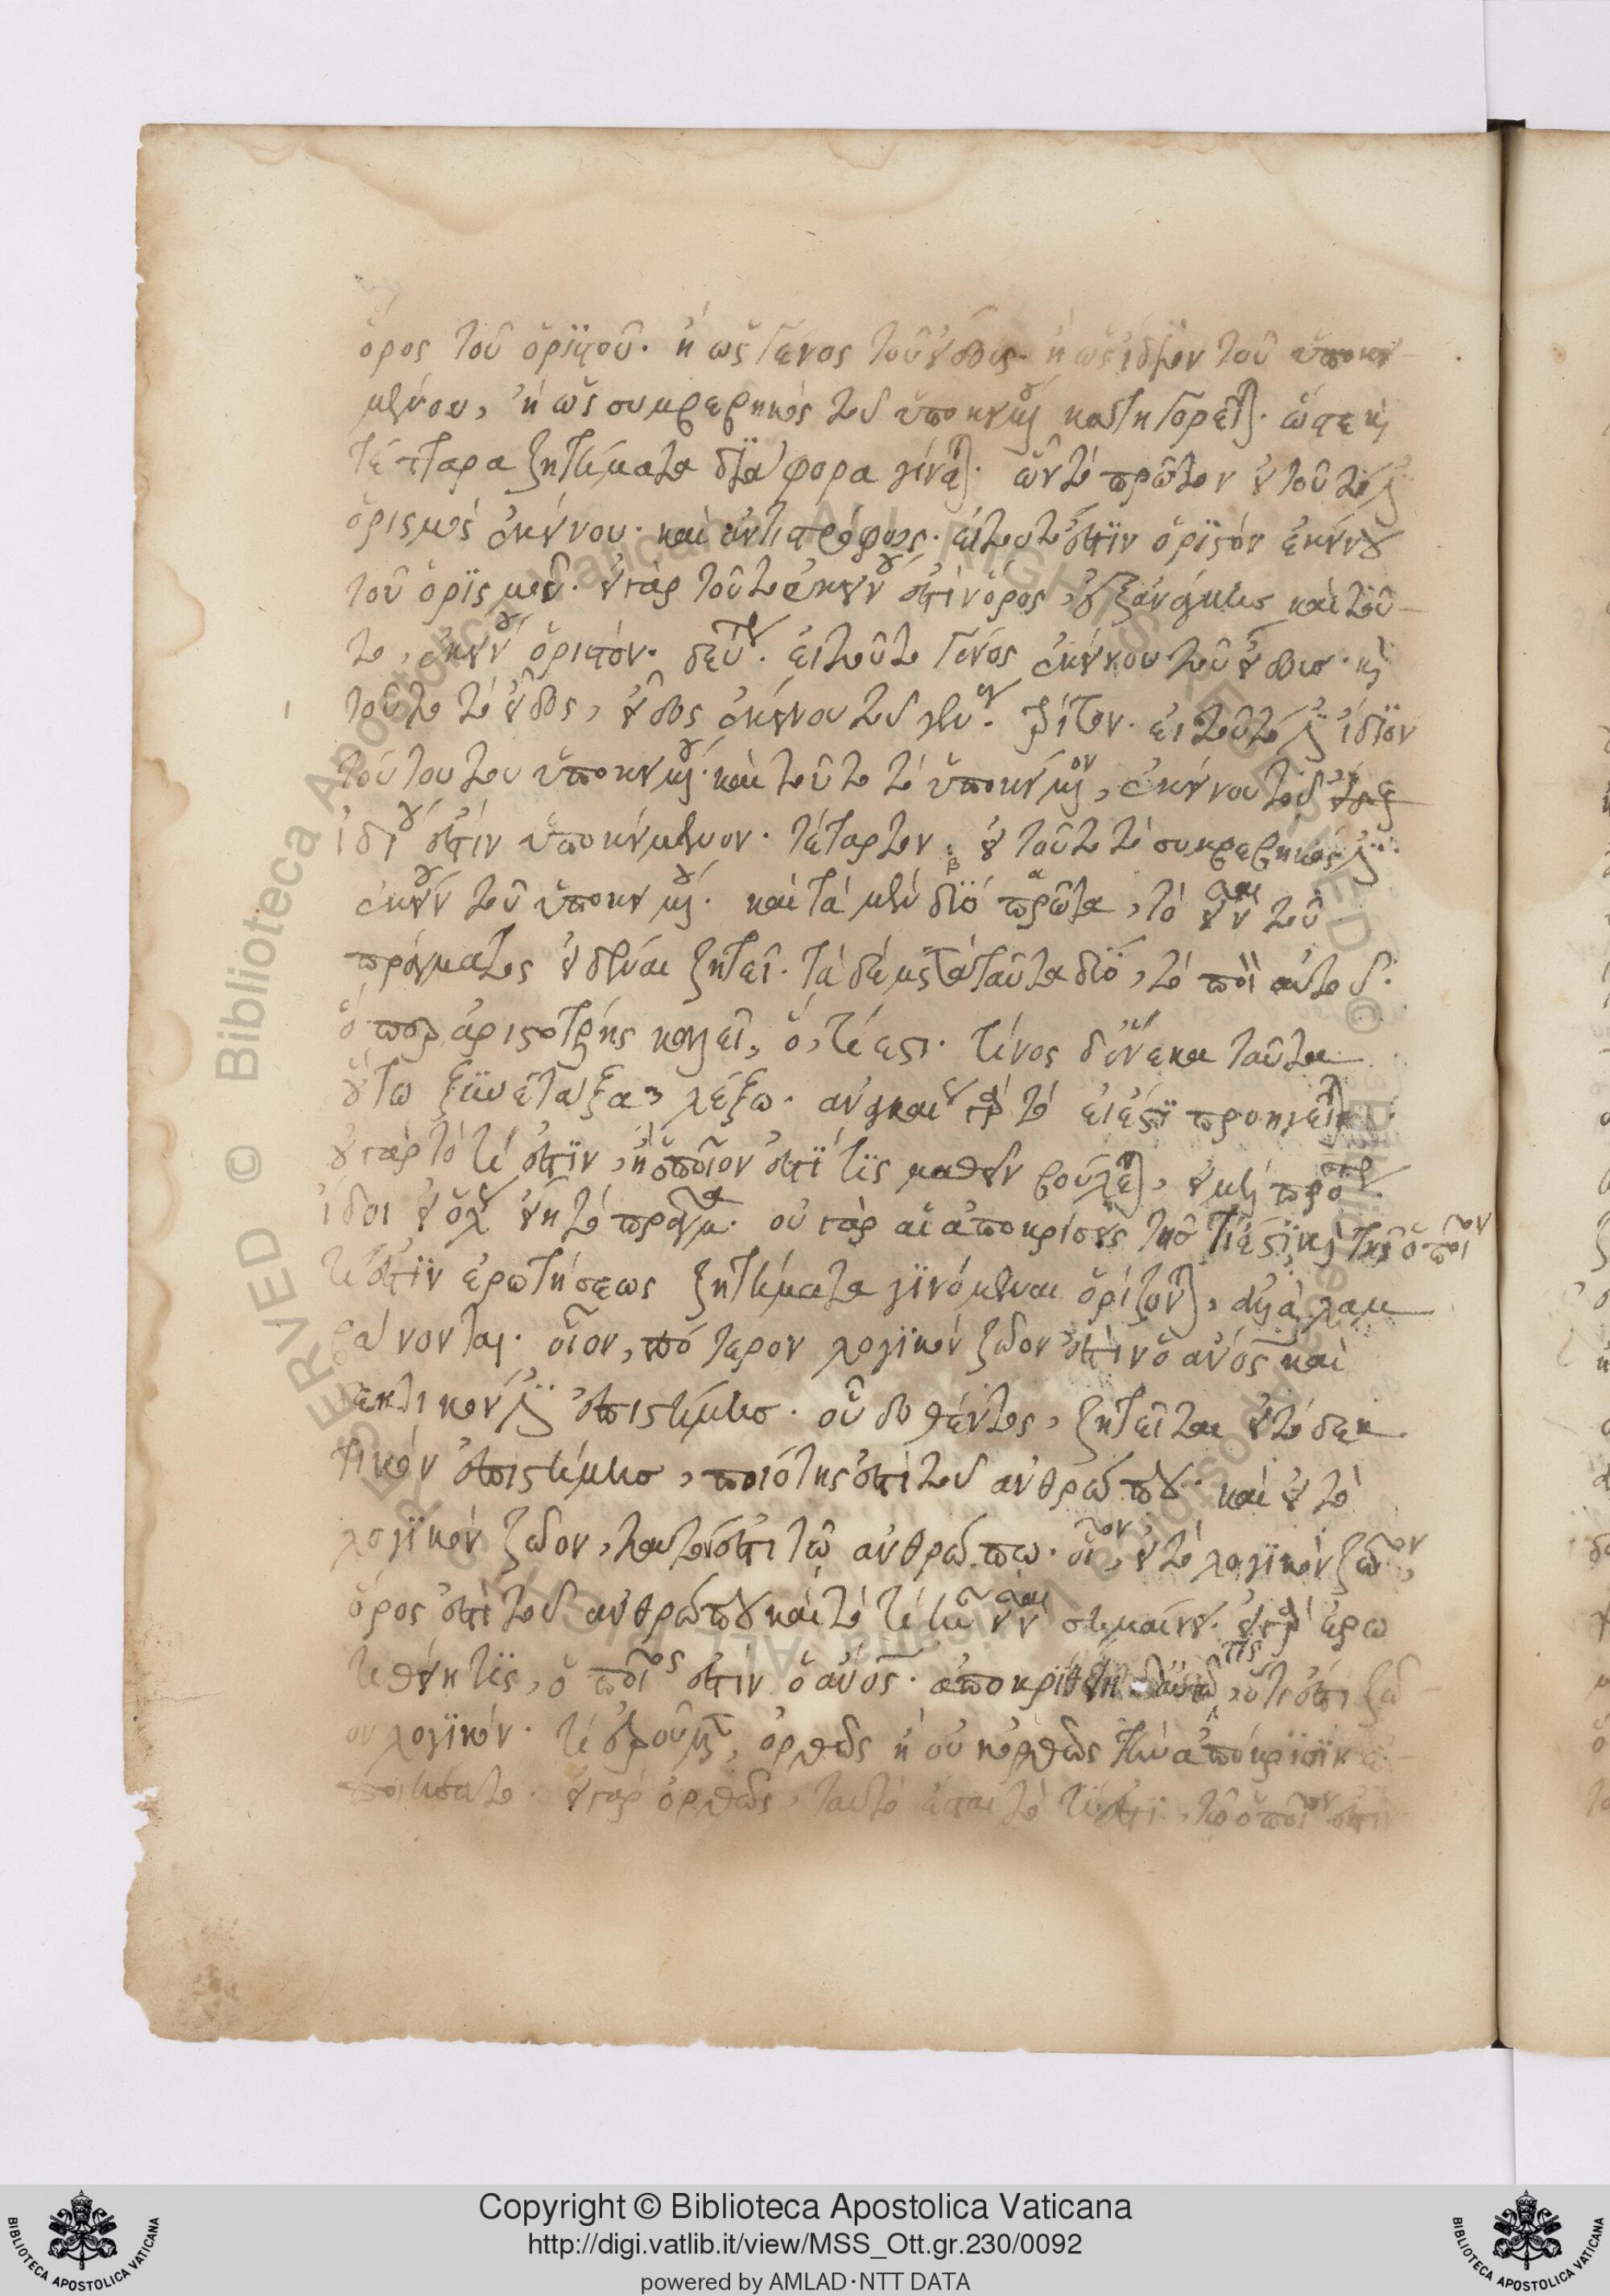 ὅρος τοῦ ὁριστοῦ· ἢ ὡς γένος τοῦ εἴδους· ἢ ὡς ἴδιον τοῦ ὑποκει
μένου, ἢ ὡς συμβεβηκὸς τοῦ ὑποκειμένου κατηγορεῖται· ὥστε καὶ
τέτταρα ζητήματα διάφορα γίνεται· ὧν τὸ πρῶτον εἰ τοῦτό ἐστιν
ὁρισμὸς ἐκείνου· καὶ ἀντιστρόφως· εἰ τοῦτό ἐστιν ὁριστὸν ἐκείνου
τοῦ ὁρισμοῦ· εἰ γὰρ τοῦτο ἐκείνου ἐστὶν ὅρος, ἐξ ἀνάγκης καὶ τοῦ
το, ἐκείνου ὁριστόν· δεύτερον· εἰ τοῦτο γένος ἐκείνου τοῦ εἴδους· καὶ
τοῦτο τὸ εἶδος, εἶδος ἐκείνου τοῦ γένους· τρίτον· εἰ τοῦτό ἐστιν ἴδιον
τούτου του ὑποκειμένου· καὶ τοῦτο τὸ ὑποκείμενον, ἐκείνου τοῦ
ἰδίου ἐστὶν ὑποκείμενον· τέταρτον· εἰ τοῦτο τὸ συμβεβηκός ἐστιν
ἐκείνου τοῦ ὑποκειμένου· καὶ τὰ μὲν δύο πρῶτα, τὸ εἶναι τοῦ
πράγματος εἰδέναι ζητεῖ· τὰ δὲ μετὰ ταῦτα δύο, τὸ ποῖον αὐτοῦ·
ὅπερ ἀριστοτέλης καλεῖ, ὅ, τί ἐστι· τίνος δ' ἕνεκα ταῦτα
οὕτω ξυνέταξα, λέξω· ἀναγκαῖον γὰρ τὸ εἰ ἔστι προηγεῖται
οὐ γὰρ τὸ τί ἐστιν, ἢ ὁποῖόν ἐστί τις μαθεῖν βούλεται, εἰ μὴ πρότερον
ἴδοι εἰ ὅλως εἴη τὸ πρᾶγμα· οὐ γὰρ αἱ ἀποκρίσεις τῆς τί ἐστιν καὶ τῆς ὁποῖόν
τί ἐστιν ἐρωτήσεως ζητήματα γινόμεναι ὁρίζονται, διαλαμ
βάνονται· οἷον, πότερον λογικὸν ζῶον ἐστὶν ὁ ἄνος καὶ
δεκτικόν ἐστιν ἐπιστήμης· οὗ δοθέντος, ζητεῖται εἰ τὸ δεκ
τικὸν ἐπιστήμης, ποιότης ἐστὶ τοῦ ἀνθρώπου· καὶ εἰ τὸ
λογικὸν ζῶον, ταυτόν ἐστι τῷ ἀνθρώπω· οἷον, εἰ τὸ λογικὸν ζῶον,
ὅρος ἐστὶ τοῦ ἀνθρώπου καὶ τὸ τί ἦν εἶναι σημαίνει· εἰ γὰρ ἐρω
τηθείη τις, ὁποῖός ἐστιν ὁ ἄνος· ἀποκριθείη τις, ὅτι ἐστὶ ζῶ
ον λογικόν· τί ἐροῦμεν, ὀρθῶς ἢ οὐκ ὀρθῶς τὴν ἀπόκρισιν ἐ
ποιήσατο· εἰ γὰρ ὀρθῶς, ταυτὸ ἔσται τὸ τί ἐστι, τῷ ὁποῖόν ἐστι
Copyright © Biblioteca Apostolica Vaticana
http://digi.vatlib.it/view/MSS_Ott.gr.230/0092
powered by AMLAD·NTT DATA